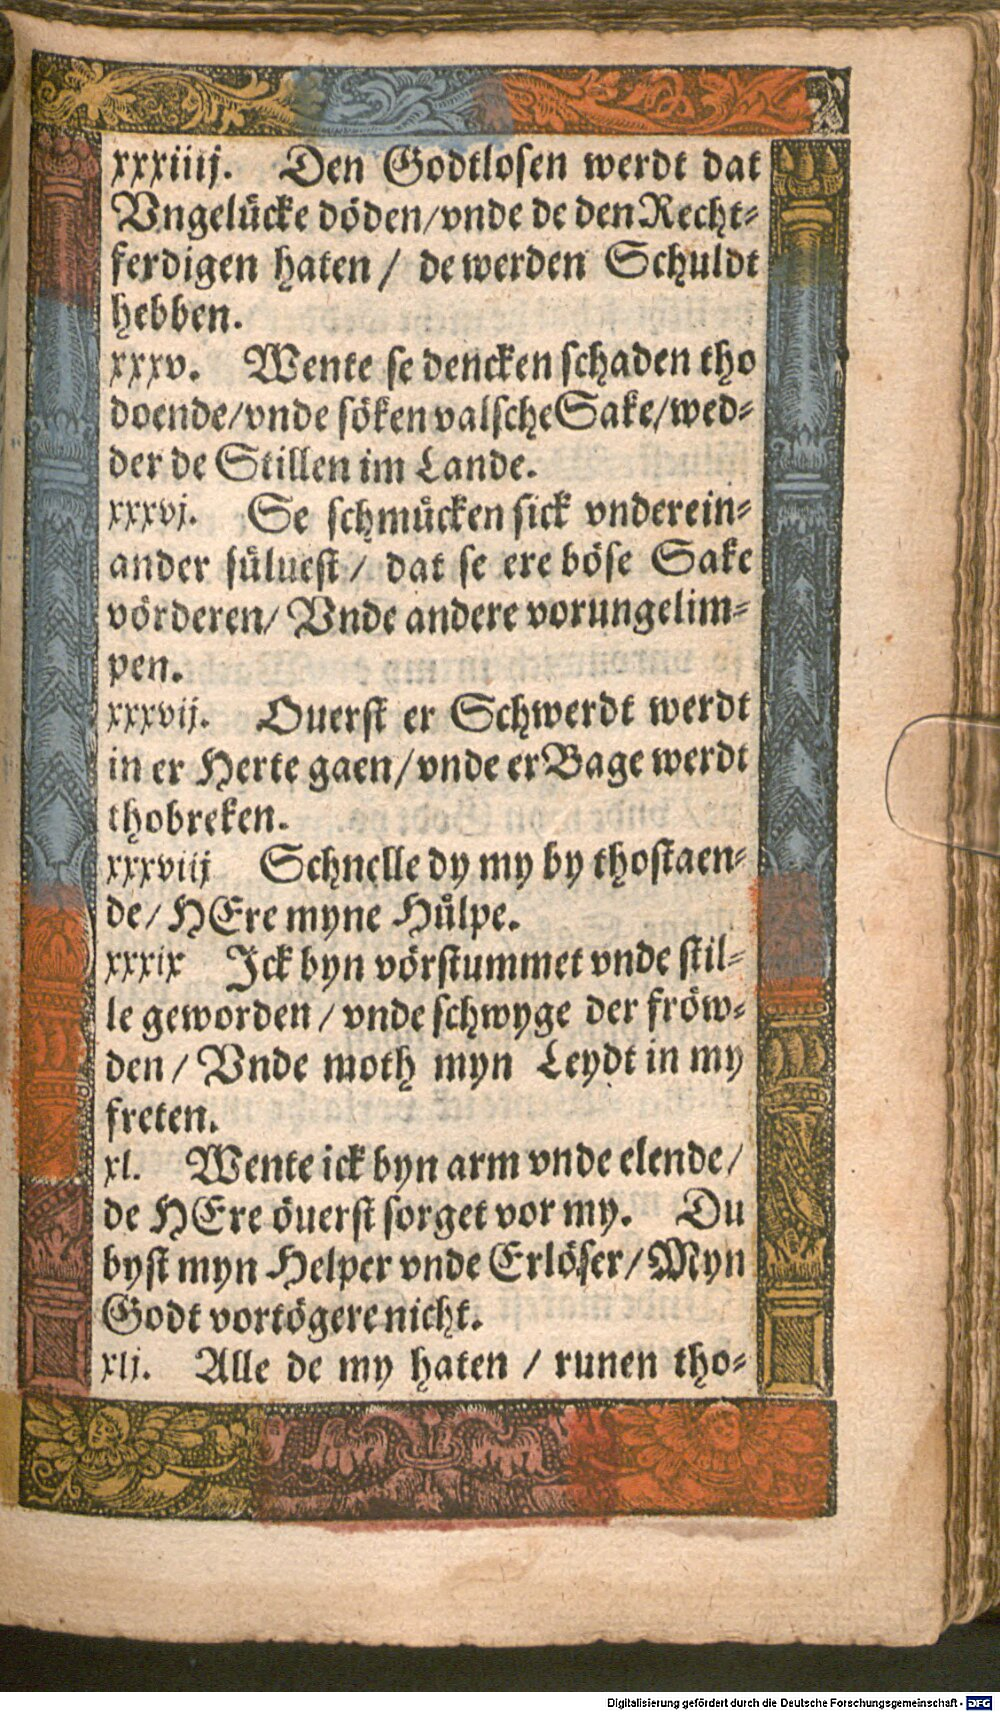 xxxiiij. Den Godtlosen werdt dat
Vngelücke döden/vnde de den Recht⸗
ferdigen haten / de werden Schuldt
hebben.
xxxv. Wente se dencken schaden tho
doende/vnde söken valsche Sake/wed⸗
der de Stillen im Lande.
xxxvj. Se schmücken sick vnderein⸗
ander süluest / dat se ere böse Sake
vörderen/ Vnde andere vorungelim⸗
pen.
xxxvij. Ouerst er Schwerdt werdt
in er Herte gaen/vnde er Bage werdt
thobreken.
xxxviij Schnelle dy my by thostaen⸗
de/ HEre myne Hülpe.
xxxix Jck byn vörstummet vnde stil⸗
le geworden / vnde schwyge der fröw⸗
den / Vnde moth myn Leydt in my
freten.
xl. Wente ick byn arm vnde elende/
de HEre öuerst sorget vor my. Du
byst myn Helper vnde Erlöser/ Myn
Godt vortögere nicht.
xlj. Alle de my haten / runen tho⸗
Digitalisierung gefördert durch die Deutsche Forschungsgemeinschaft - DFG